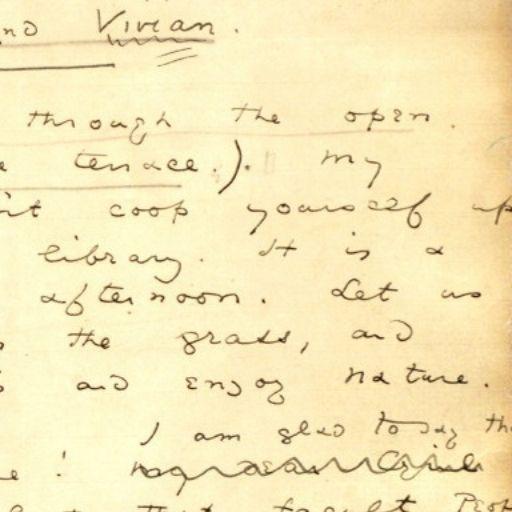 nd Vivian.
through the open.
e terrace.). My
n't coop yourself up
library. It is a
afternoon. Let us
the grass, and
and enjoy nature.
I am glad to say th
e!
that faculty Peop